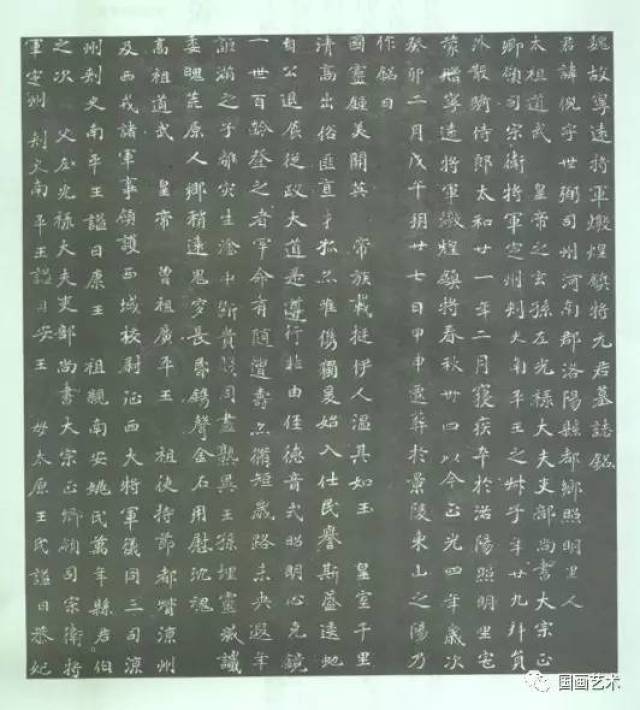 魏故寧遠將軍燉煌鎮將元君墓誌銘
君諱倪字世弼司州河南郡洛陽縣都鄉照明里人
太祖道武 皇帝之玄孫左光祿大夫吏部尚書大宗正
卿領司宗衛將軍定州刺史南平王之叔子年廿九升員
外散騎侍郎太和廿一年二月寢疾卒於洛陽照明里宅
蒙增寧遠將軍燉煌鎮將春秋卅四以今正光四年歲次
癸卯二月戊午朔廿七日甲申遷葬於景陵東山之陽乃
作銘曰
國靈鍾美開英 帝族載挺伊人溫其如玉 皇室千里
清高出俗匪直才松亦唯儁獨爰始入仕民譽斯遠地
自公退從政大道是遵行非由徑德音式昭明心克鏡
一世百齡登之者罕命有隨遭壽亦脩短歲路未央遐年
詎滿之子離灾生淦中斷貴賤同盡熟異王孫埋靈
委魄荒原人鄉稍遠鬼穸長昏鐫聲金石用慰沈魂
高祖道武 皇帝 曾祖廣平王 祖使持節都督涼州
及西戎諸軍事領護西域校尉征西大將軍儀同三司涼
州刺史南平王謚曰康王 祖親南安姚氏萬年縣君伯
之次 父左光祿大夫吏部尚書大宗正卿領司宗衛將
軍定州 刺史南平王謚曰安王 母太原王氏謚曰恭妃
国画艺术